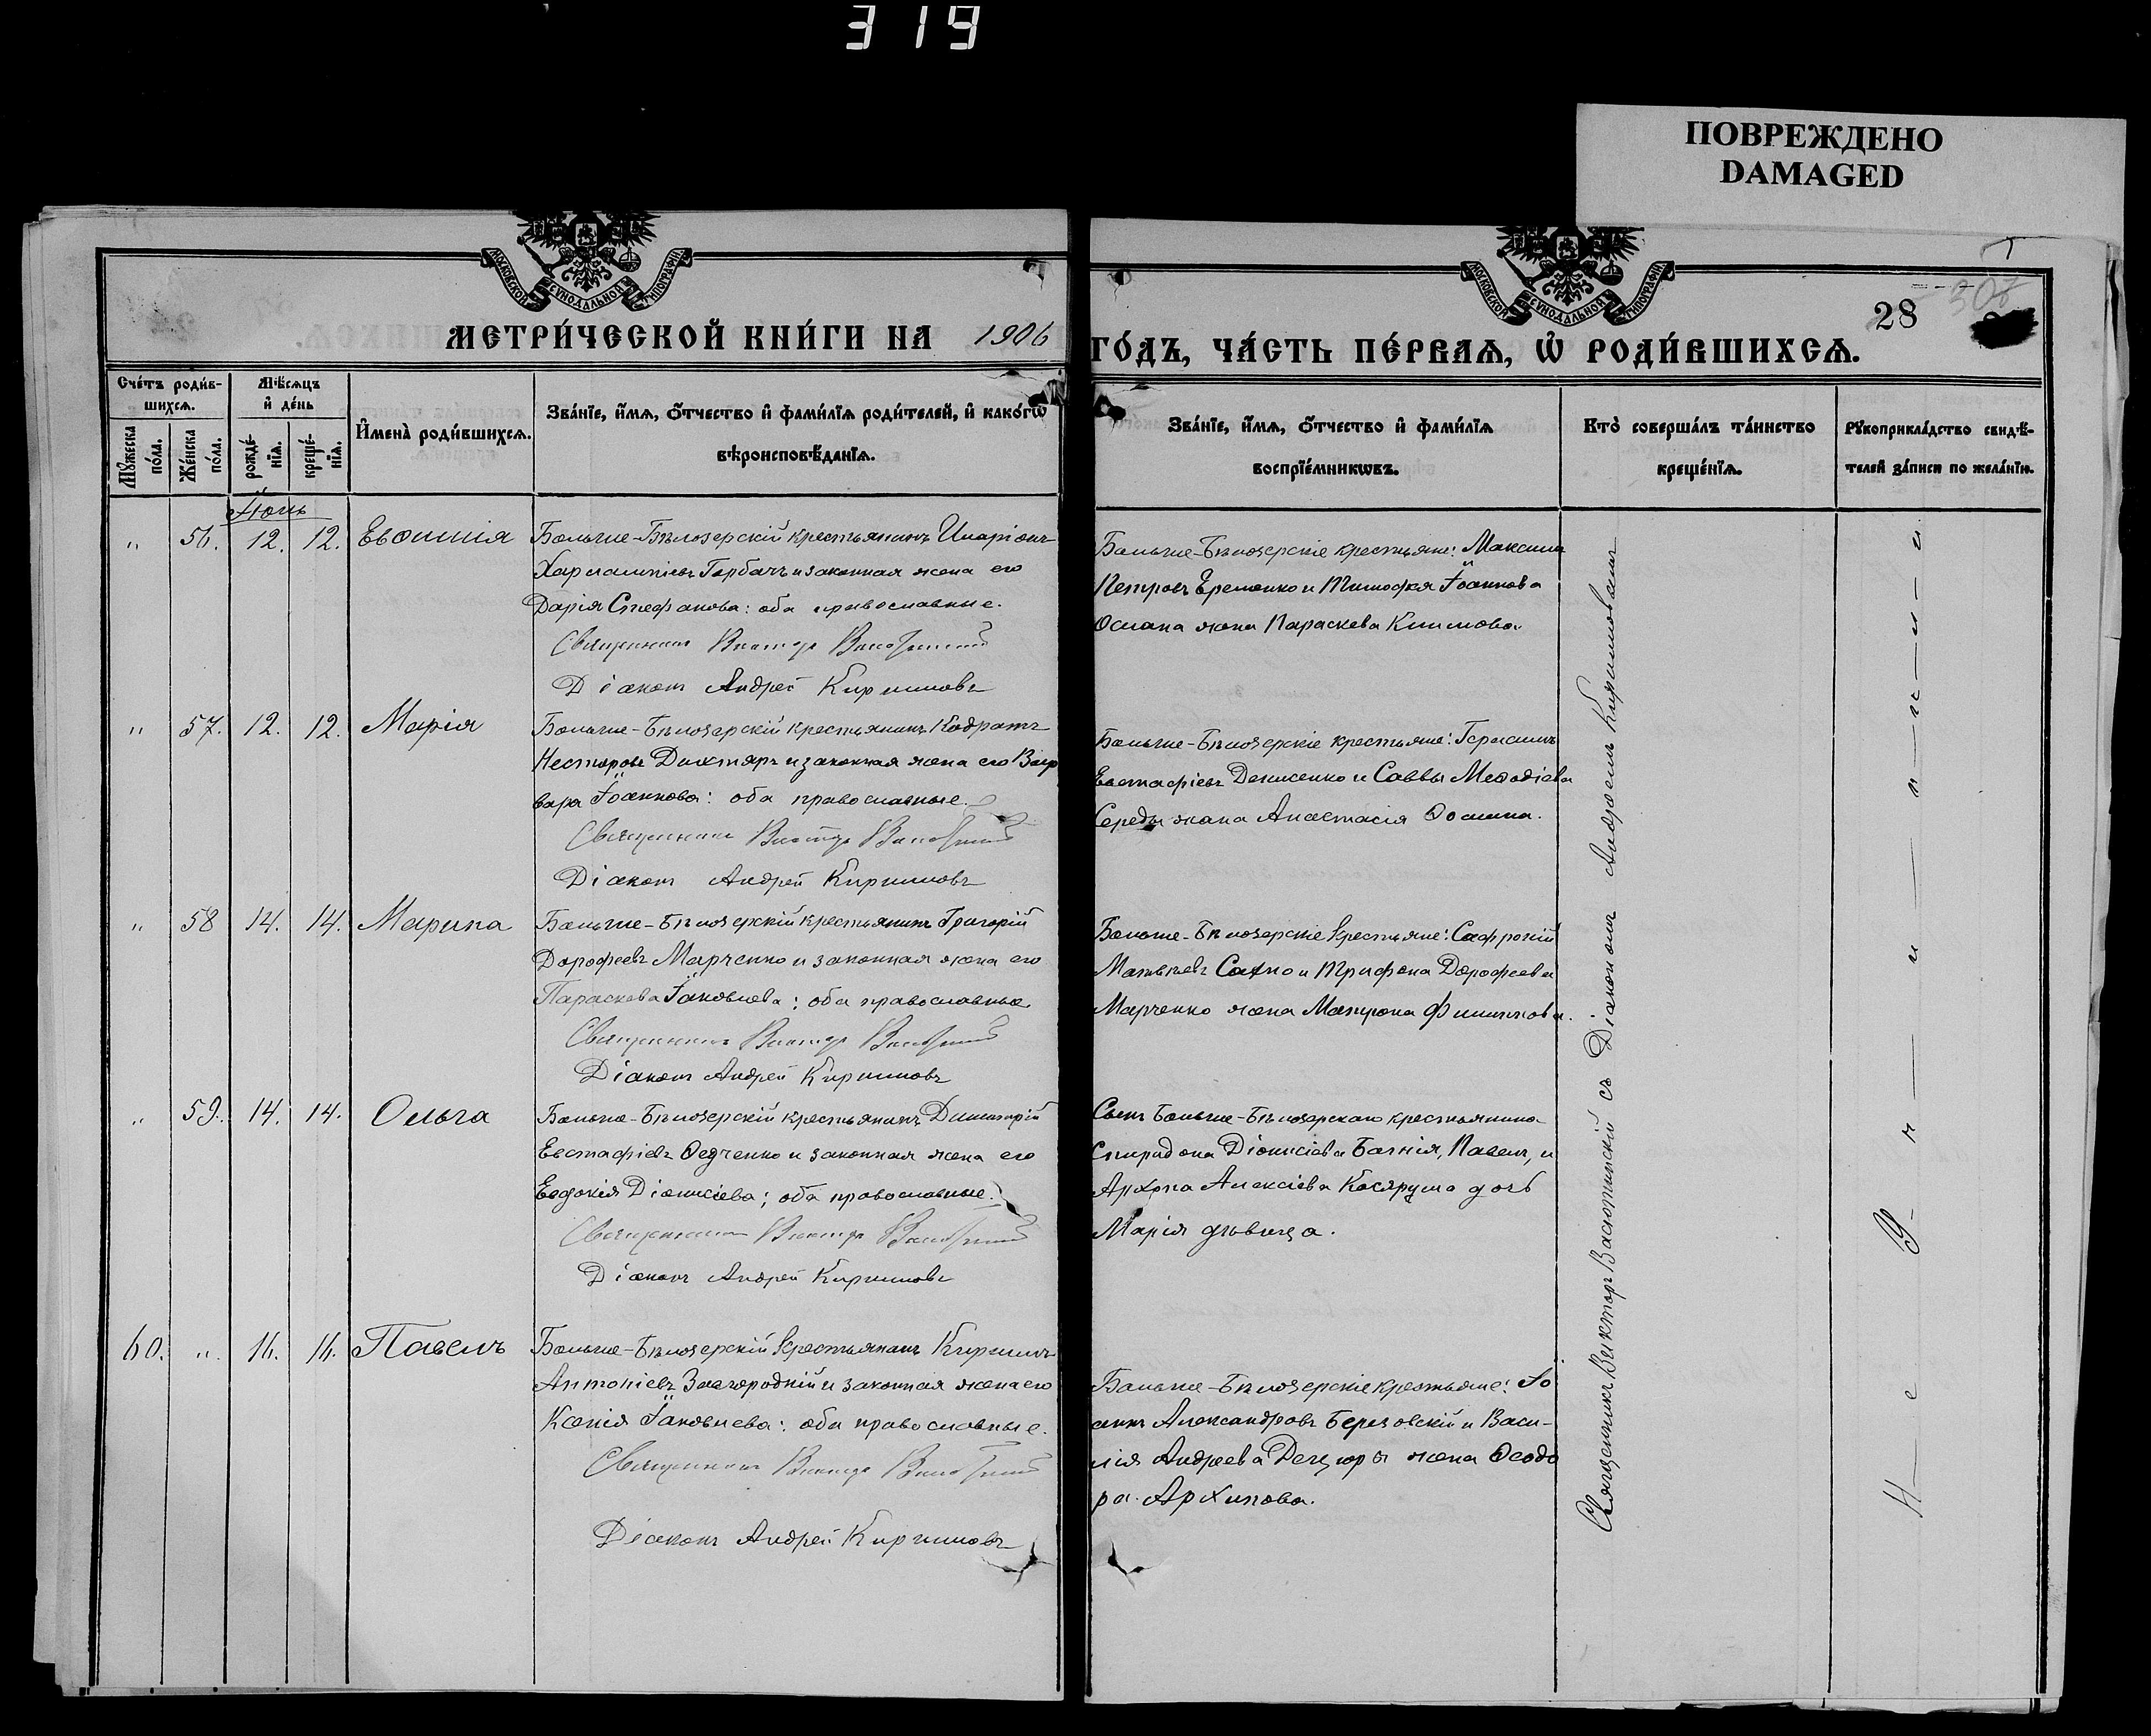 319
ПОВРЕЖДЕНО
DAMAGED
МОСКОВСКОЙ СѴНОДАЛЬНОЙ ТИПОГРАФІИ.
МОСКОВСКОЙ СѴНОДАЛЬНОЙ ТИПОГРАФІИ.
28 307
МЕТРИ́ЧЕСКОЙ КНИ́ГИ НА 1906 ГО́ДЪ, ЧА́СТЬ ПЕ́РВАѦ, Ѽ РОДИ́ВШИХСѦ.
Сче́тъ роди́в-
шихсѧ.
Мꙋ́жеска по́ла.
Же́нска по́ла.
Мѣ́сѧцъ
и҆ де́нь
рожде́-
нїѧ.
креще́-
нїѧ.
И҆мена̀ роди́вшихсѧ.
Зва́нїе, и҆́мѧ, ѻ҆́тчество и҆ фами́лїѧ роди́телей, и҆ како́гѡ
вѣроисповѣ́данїѧ.
Зва́нїе, и҆́мѧ, ѻ҆́тчество и҆ фами́лїѧ
воспрїе́мникѡвъ.
Кто̀ соверша́лъ та́инство
креще́нїѧ.
Рꙋкоприкла́дство свидѣ́-
телей за́писи по жела́нїю.
Іюнь
" 56. 12. 12. Евѳимія
Больше-Бѣлозерскій крестьянинъ Иларіонъ
Харлампіевъ Горбачъ и законная жена его
Дарія Стефанова: оба православные.
Священникъ Викторъ
Діаконъ Андрей Кирилловъ
Больше-Бѣлозерскіе крестьяне: Максимъ
Петровъ Еременко и Тимофея Іоаннова
Османа жена Параскева Климова
" 57. 12. 12. Марія
Больше-Бѣлозерскій крестьянинъ Кодратъ
Несторовъ Дихтярь и законная жена его Вар
вара Іоаннова: оба православные.
Священникъ Викторъ
Діаконъ Андрей Кирилловъ
Больше-Бѣлозерскіе крестьяне: Герасимъ
Евстафіевъ Денисенко и Саввы Меѳодіева
Середы жена Анастасія Ѳомина.
" 58 14. 14. Марина
Больше-Бѣлозерскій крестьянинъ Григорій
Дорофеевъ Марченко и законная жена его
Параскева Іаковлева: оба православные
Священникъ Викторъ
Діаконъ Андрей Кирилловъ
Больше-Бѣлозерскіе крестьяне: Сафроній
Матвѣевъ Сахно и Трифона Дорофеева
Марченко жена Матрона Филиппова.
" 59. 14. 14. Ольга
Больше-Бѣлозерскій крестьянинъ Димитрій
Евстафіевъ Ѳедченко и законная жена его
Евдокія Діонисіева; оба православные.
Священникъ Викторъ
Діаконъ Андрей Кирилловъ
Сынъ Больше-Бѣлозерскаго крестьянина
Спиридона Діонисіева Багнія, Павелъ, и
Архипа Алексіева Косярума дочь
Марія дѣвица.
60. " 16. 16. Павелъ
Больше-Бѣлозерскій крестьянинъ Кириллъ
Антоніевъ Загородній и законная жена его
Ксенія Іаковлева: оба православные.
Священникъ Викторъ
Діаконъ Андрей Кирилловъ
Больше-Бѣлозерскіе крестьяне: Іо
аннъ Александровъ Березовскій и Васи-
лія Андреева Децюры жена Ѳеодо
ра Архипова.
Священникъ Викторъ Васютинскій съ Діакономъ Андреемъ Кирилловымъ